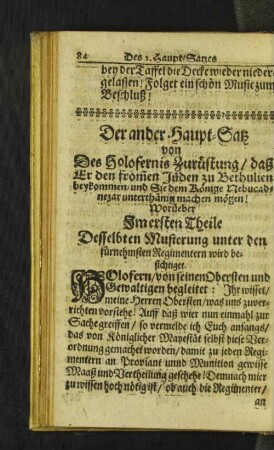 84 Des 2. Haupt/Satzes
bey der Taffel die Decke wieder nieder-
gelassen! Folget ein schön Music zum
Beschluß!
Der ander Haupt-Satz
von
Des Holofernis Zurüstung/ daß
Er den frommen Jüden zu Bethulien
beykommen/ und Sie dem Könige Nebucad-
nezar unterthänig machen mögen!
Worueber
Im ersten Theile
Desselbten Musterung unter den
fürnehmsten Regimentern wird be-
sichtiget.
HOlofern/ von seinem Obersten und
Gewaltigen begleitet: Ihr wisset/
meine Herren Obersten/ was uns zuver-
richten vorstehe! Auff daß wir nun einmahl zur
Sache greiffen/ so vermelde ich Euch anfangs/
das von Königlicher Mayestät selbst diese Ver-
ordnung gemachet worden/ damit zu jeden Regi-
mentern an Proviant unnd Munition gewisse
Maaß und Vertheilung geschehe! Demnach mier
zu wissen hoch nötig ist/ ob auch die Regimenter/
an